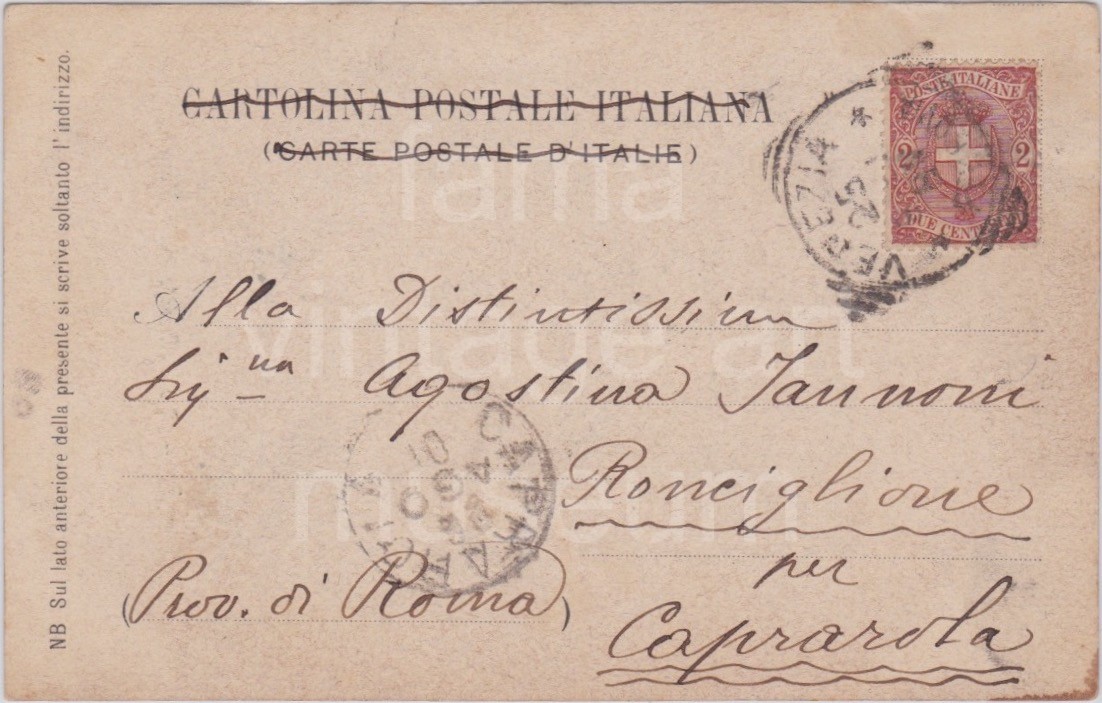 CARTOLINA POSTALE ITALIANA
(CARTE POSTALE D'ITALIE)
POSTE ITALIANE
2 2
DUE CENT
VENEZIA
22
Alla Distintissima
Sig.na Agostina Jannoni
Ronciglione
per
Caprarola
(Prov. di Roma)
CAPRAROLA
AGO
01
NB Sul lato anteriore della presente si scrive soltanto l'indirizzo.
fama
vintage art
museum